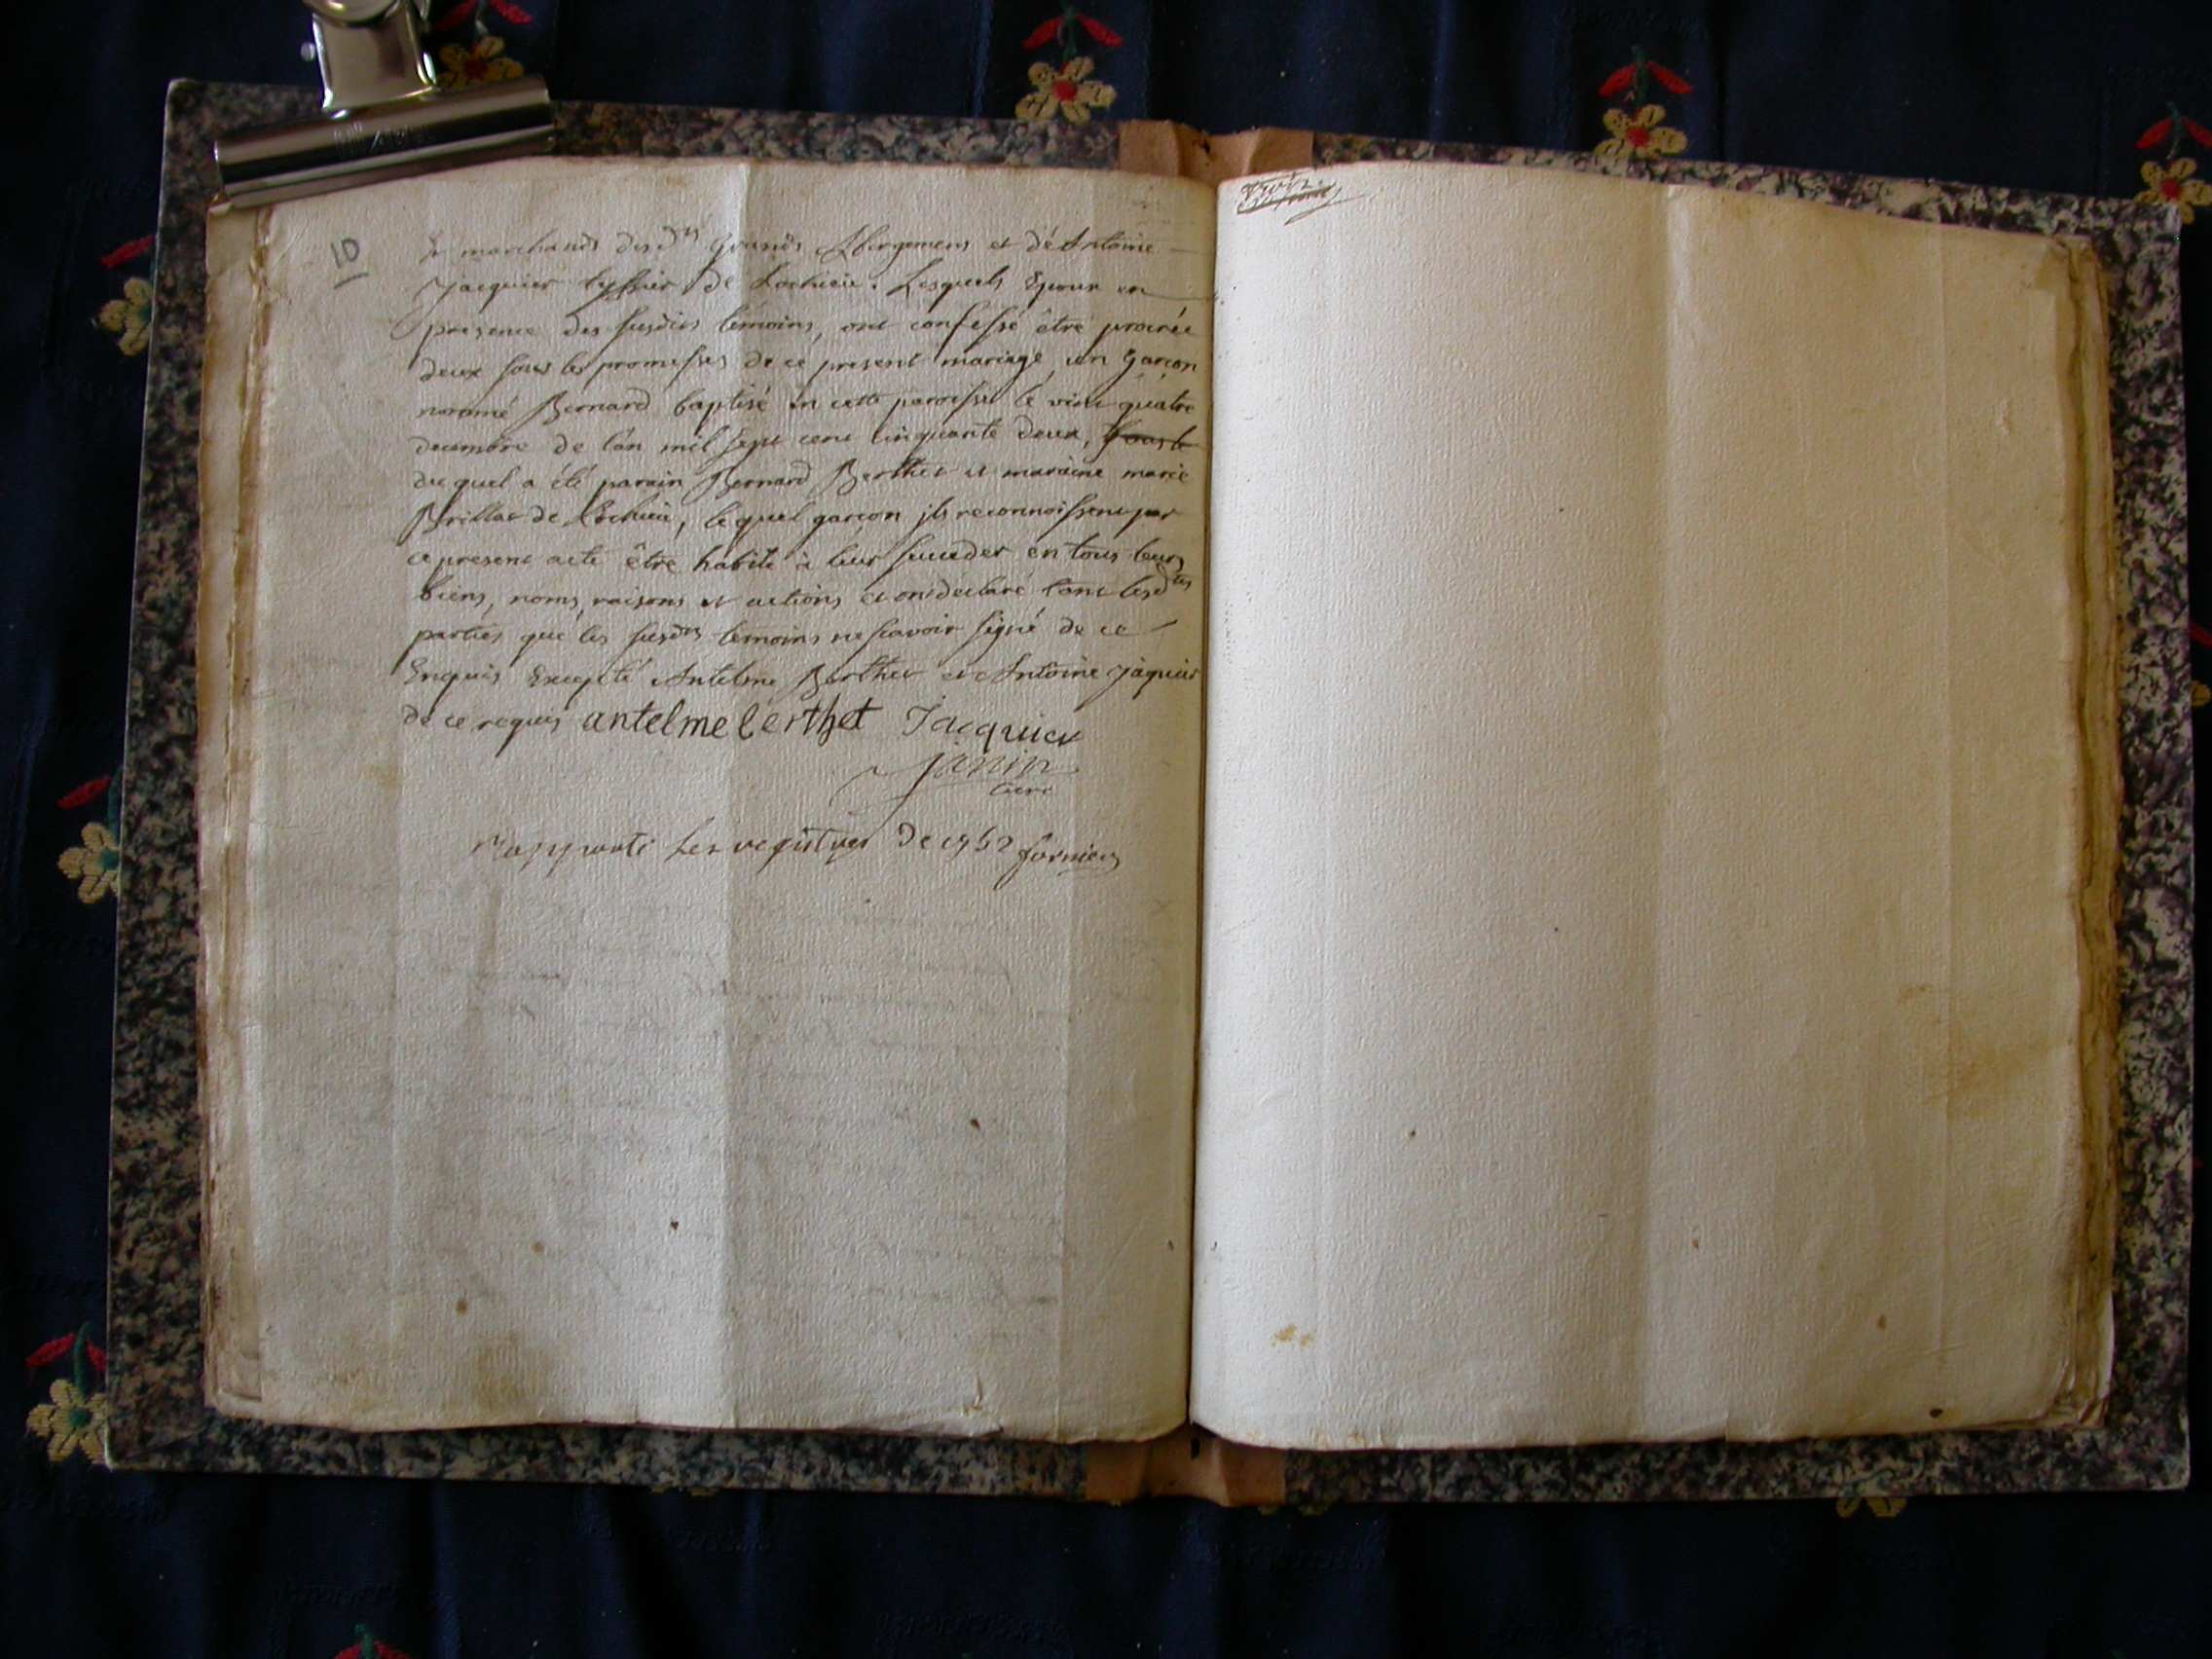 10
marchands desdts Grands Abergemens et dé Antoine
Jacquier tyssier de Lochieu. Lesquels Epoux en
presence des susdits témoins, ont confessé être procréé
deux sous les promesses de ce present mariage, un garçon
nommé Bernard baptisé en cette paroisse lé vint quatre
decembre de l'an mil sept cent cinquante deux,
duquel a été parain Bernard Berthet et maraine marie
Brillat de Lochieu, lequel garçon ils reconnoissent par
ce present acte être habile à leur succeder en tous leurs
biens, noms, raisons et actions et ont déclaré tant lesdtes
parties qué les susdts temoins ne scavoir signé de ce
Enquis Excepté Antelme Berthet et Antoine Jaquier
de ce requis antelme berthet Jacquier
Janin
curé
rapporté les registres de 1752